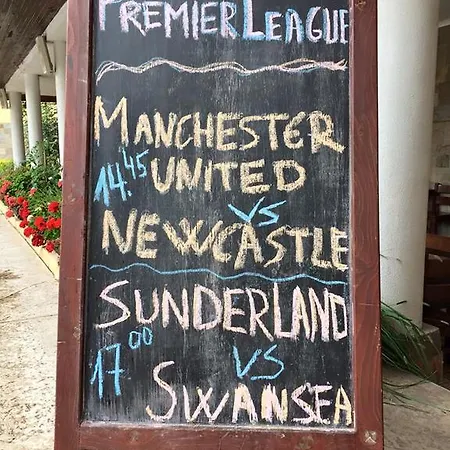 PREMIER LEAGUE
MANCHESTER
14.45 UNITED
VS
NEWCASTLE
SUNDERLAND
17.00 VS
SWANSEA